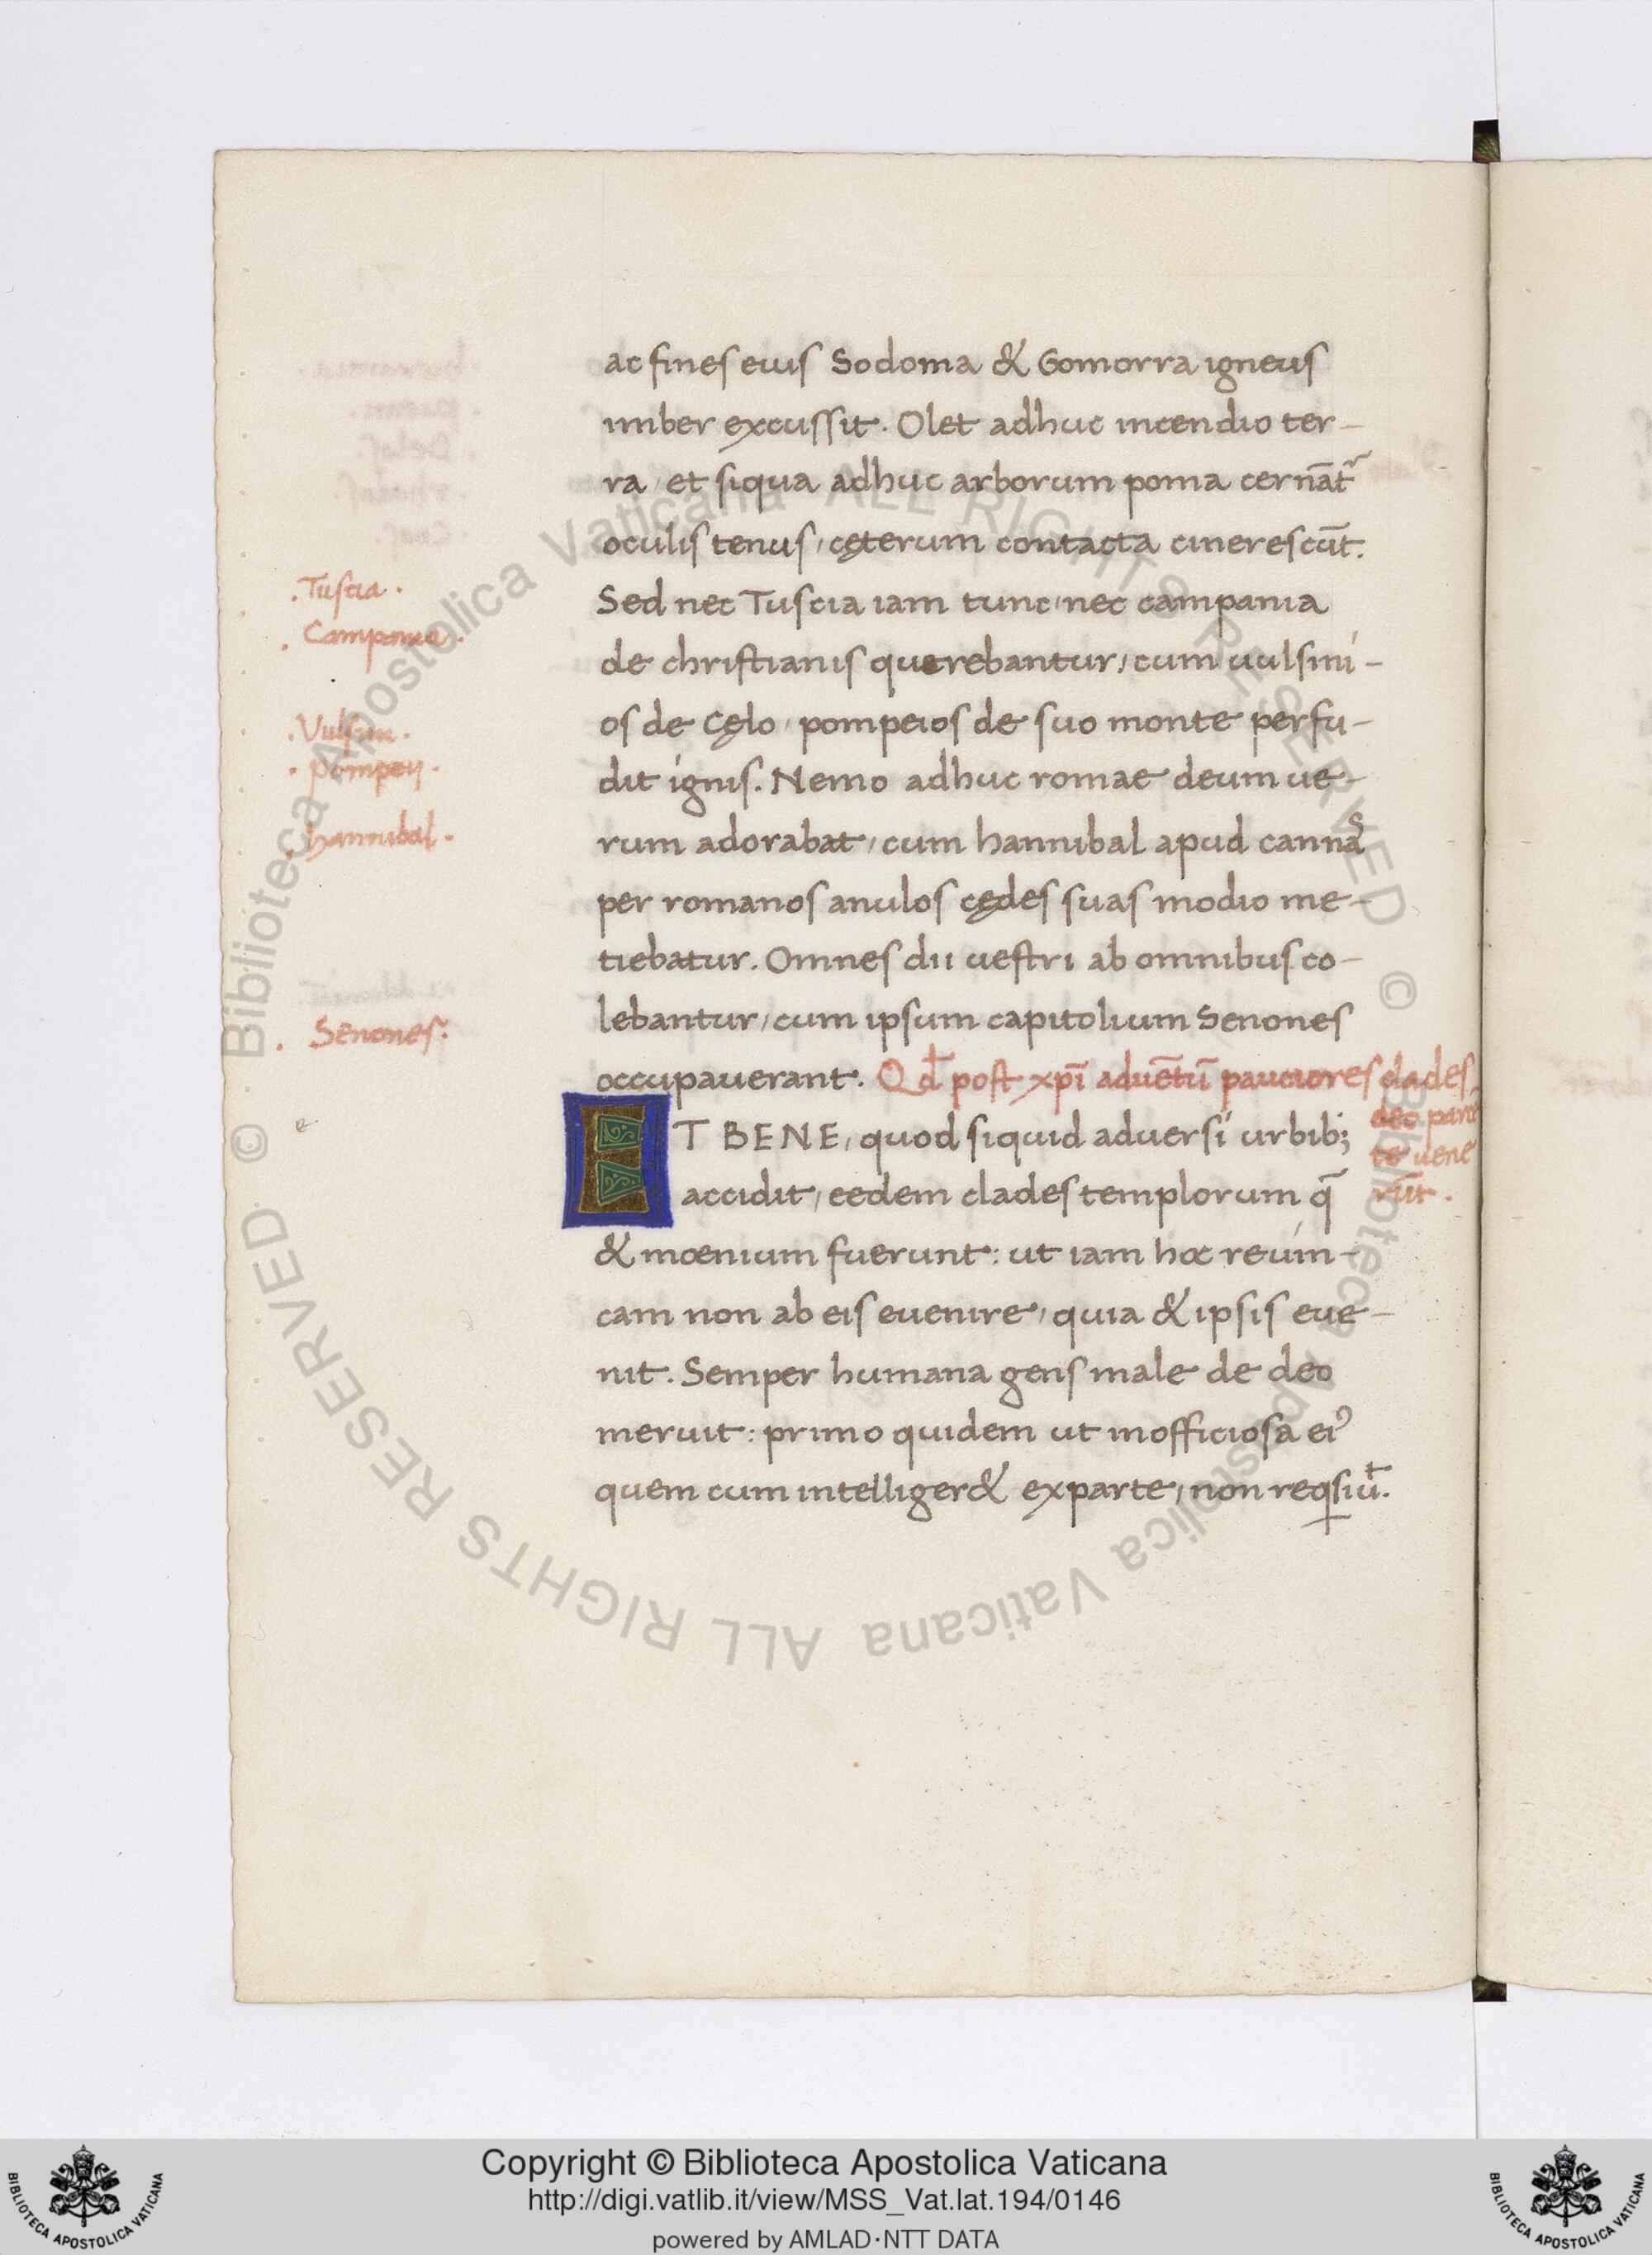 ac fines eius Sodoma & Gomorra igneus
imber excussit. Olet adhuc incendio ter-
ra, et siqua adhuc arborum poma cernāt᷑
oculis tenus, cęterum contacta cinerescūt.
.Tuscia.
Sed nec Tuscia iam tunc, nec campania
.Campania.
de christianis querebantur, cum uulsini-
.Vulsini.
os de cęlo, pompeios de suo monte perfu-
.pompeij.
dit ignis. Nemo adhuc romae deum ue-
.hannibal.
rum adorabat, cum hannibal apud cannas
per romanos anulos cędes suas modio me-
tiebatur. Omnes dii uestri ab omnibus co-
lebantur, cum ipsum capitolium Senones
.Senones.
occupauerant. Qd̄ post xpī aduētū pauciores clades
deo pariē
te uene
rūt.
ET BENE, quod siquid aduersi urbib;
accidit, eedem clades templorum q̄
& moenium fuerunt: ut iam hoc reuin-
cam non ab eis euenire, quia & ipsis eue-
nit. Semper humana gens male de deo
meruit: primo quidem ut inofficiosa ei᾿
quem cum intelliger& ex parte, non reqsiūt.
Copyright © Biblioteca Apostolica Vaticana
http://digi.vatlib.it/view/MSS_Vat.lat.194/0146
powered by AMLAD·NTT DATA
BIBLIOTECA APOSTOLICA VATICANA
BIBLIOTECA APOSTOLICA VATICANA
© Biblioteca Apostolica Vaticana ALL RIGHTS RESERVED © Biblioteca Apostolica Vaticana ALL RIGHTS RESERVED